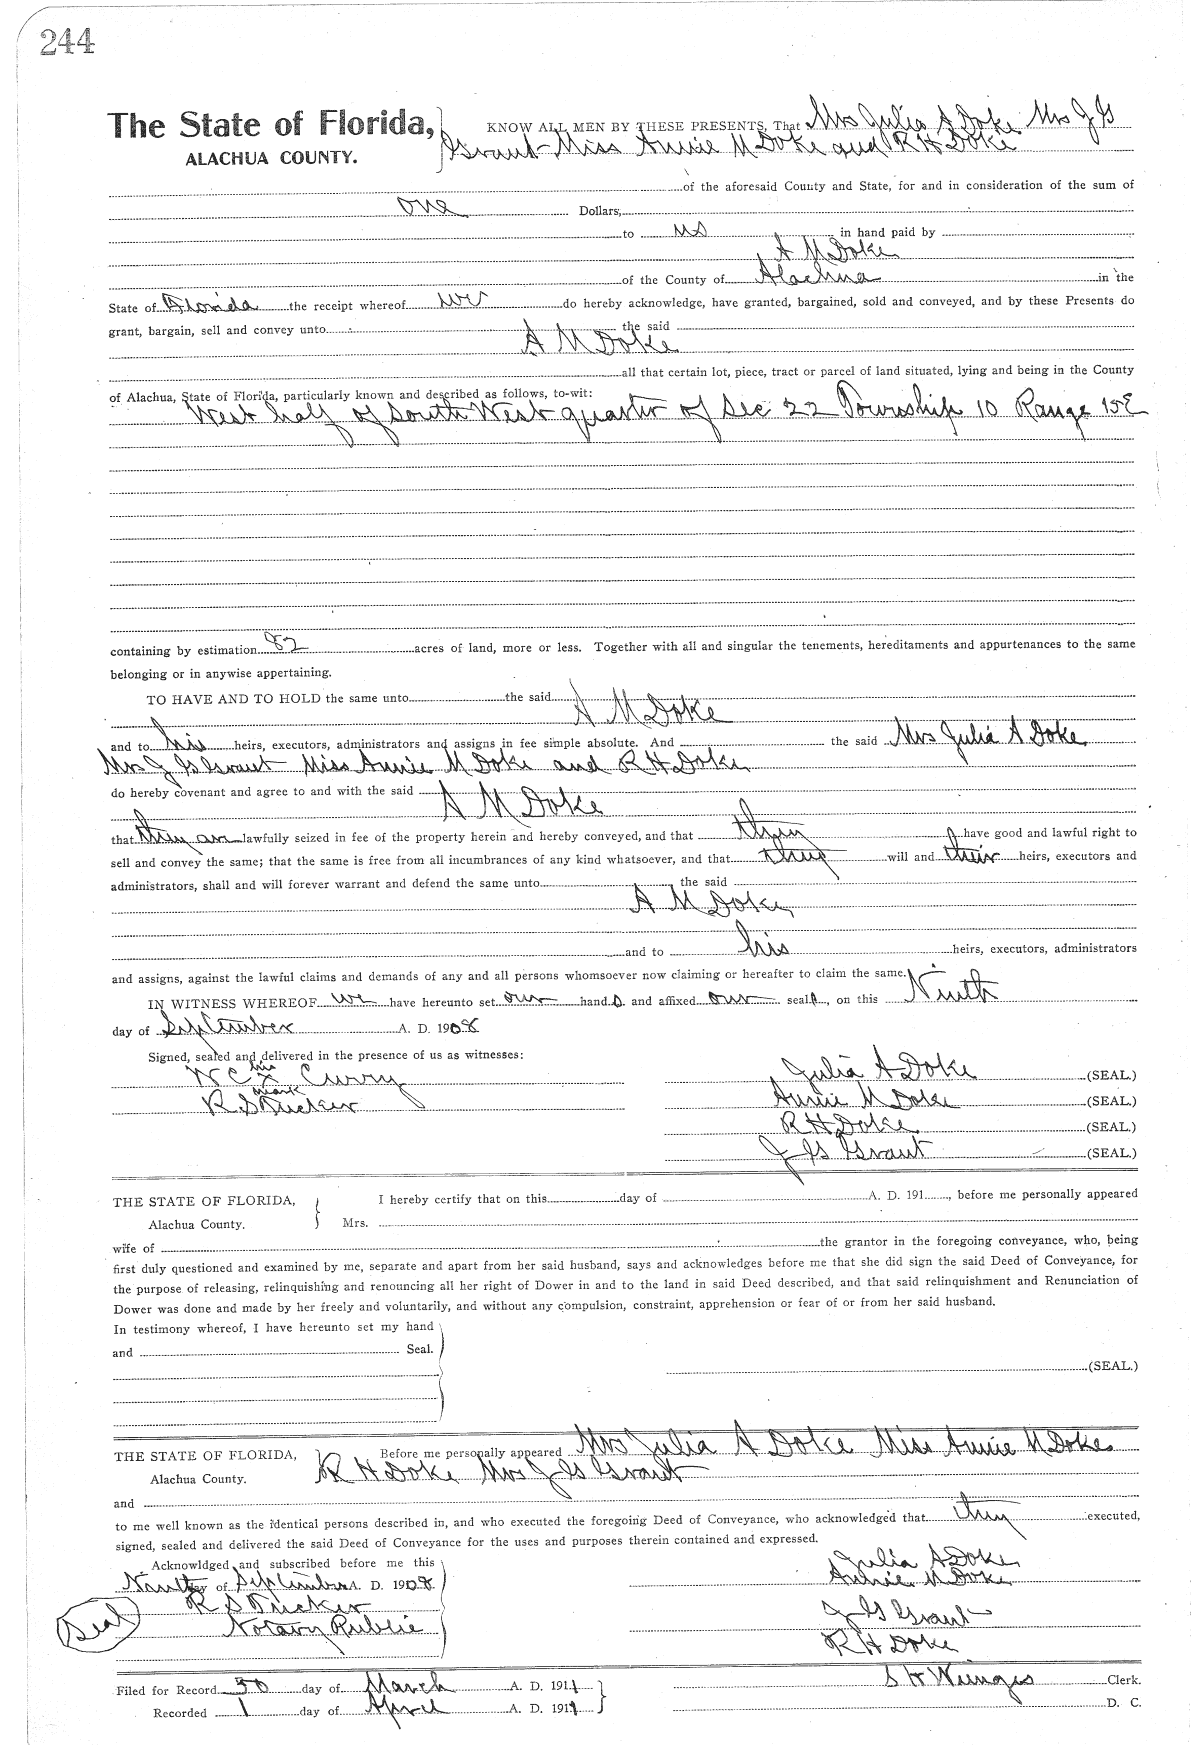 244
The State of Florida, KNOW ALL MEN BY THESE PRESENTS, That Mrs Julia A Doke Mrs J G
ALACHUA COUNTY. Grant Miss Annie M Doke and R H Doke
of the aforesaid County and State, for and in consideration of the sum of
one Dollars,
to us in hand paid by
A M Doke
of the County of Alachua in the
State of Florida the receipt whereof we do hereby acknowledge, have granted, bargained, sold and conveyed, and by these Presents do
grant, bargain, sell and convey unto the said
A M Doke
all that certain lot, piece, tract or parcel of land situated, lying and being in the County
of Alachua, State of Florida, particularly known and described as follows, to-wit:
West half of South West quarter of Sec 22 Township 10 Range 15E
containing by estimation 82 acres of land, more or less. Together with all and singular the tenements, hereditaments and appurtenances to the same
belonging or in anywise appertaining.
TO HAVE AND TO HOLD the same unto the said A M Doke
and to his heirs, executors, administrators and assigns in fee simple absolute. And the said Mrs Julia A Doke
Mrs J G Grant Miss Annie M Doke and R H Doke
do hereby covenant and agree to and with the said A M Doke
that they are lawfully seized in fee of the property herein and hereby conveyed, and that they have good and lawful right to
sell and convey the same; that the same is free from all incumbrances of any kind whatsoever, and that they will and their heirs, executors and
administrators, shall and will forever warrant and defend the same unto the said
A M Doke
and to his heirs, executors, administrators
and assigns, against the lawful claims and demands of any and all persons whomsoever now claiming or hereafter to claim the same.
IN WITNESS WHEREOF we have hereunto set our hands and affixed our seals, on this Ninth
day of September A. D. 1908
Signed, sealed and delivered in the presence of us as witnesses:
W C his x mark Curry Julia A Doke (SEAL.)
R S Tucker Annie M Doke (SEAL.)
R H Doke (SEAL.)
J G Grant (SEAL.)
THE STATE OF FLORIDA, I hereby certify that on this day of A. D. 191 , before me personally appeared
Alachua County. Mrs.
wife of the grantor in the foregoing conveyance, who, being
first duly questioned and examined by me, separate and apart from her said husband, says and acknowledges before me that she did sign the said Deed of Conveyance, for
the purpose of releasing, relinquishing and renouncing all her right of Dower in and to the land in said Deed described, and that said relinquishment and Renunciation of
Dower was done and made by her freely and voluntarily, and without any compulsion, constraint, apprehension or fear of or from her said husband.
In testimony whereof, I have hereunto set my hand
and Seal.
(SEAL.)
THE STATE OF FLORIDA, Before me personally appeared Mrs Julia A Doke Miss Annie M Doke
Alachua County. R H Doke Mrs J G Grant
and
to me well known as the identical persons described in, and who executed the foregoing Deed of Conveyance, who acknowledged that they executed,
signed, sealed and delivered the said Deed of Conveyance for the uses and purposes therein contained and expressed.
Acknowldged and subscribed before me this Julia A Doke
day of September A. D. 1908. Annie M Doke
R S Tucker J G Grant
Seal Notary Public R H Doke
Filed for Record 30 day of March A. D. 1911 S H Wienges Clerk.
Recorded 1 day of April A. D. 1911 D. C.